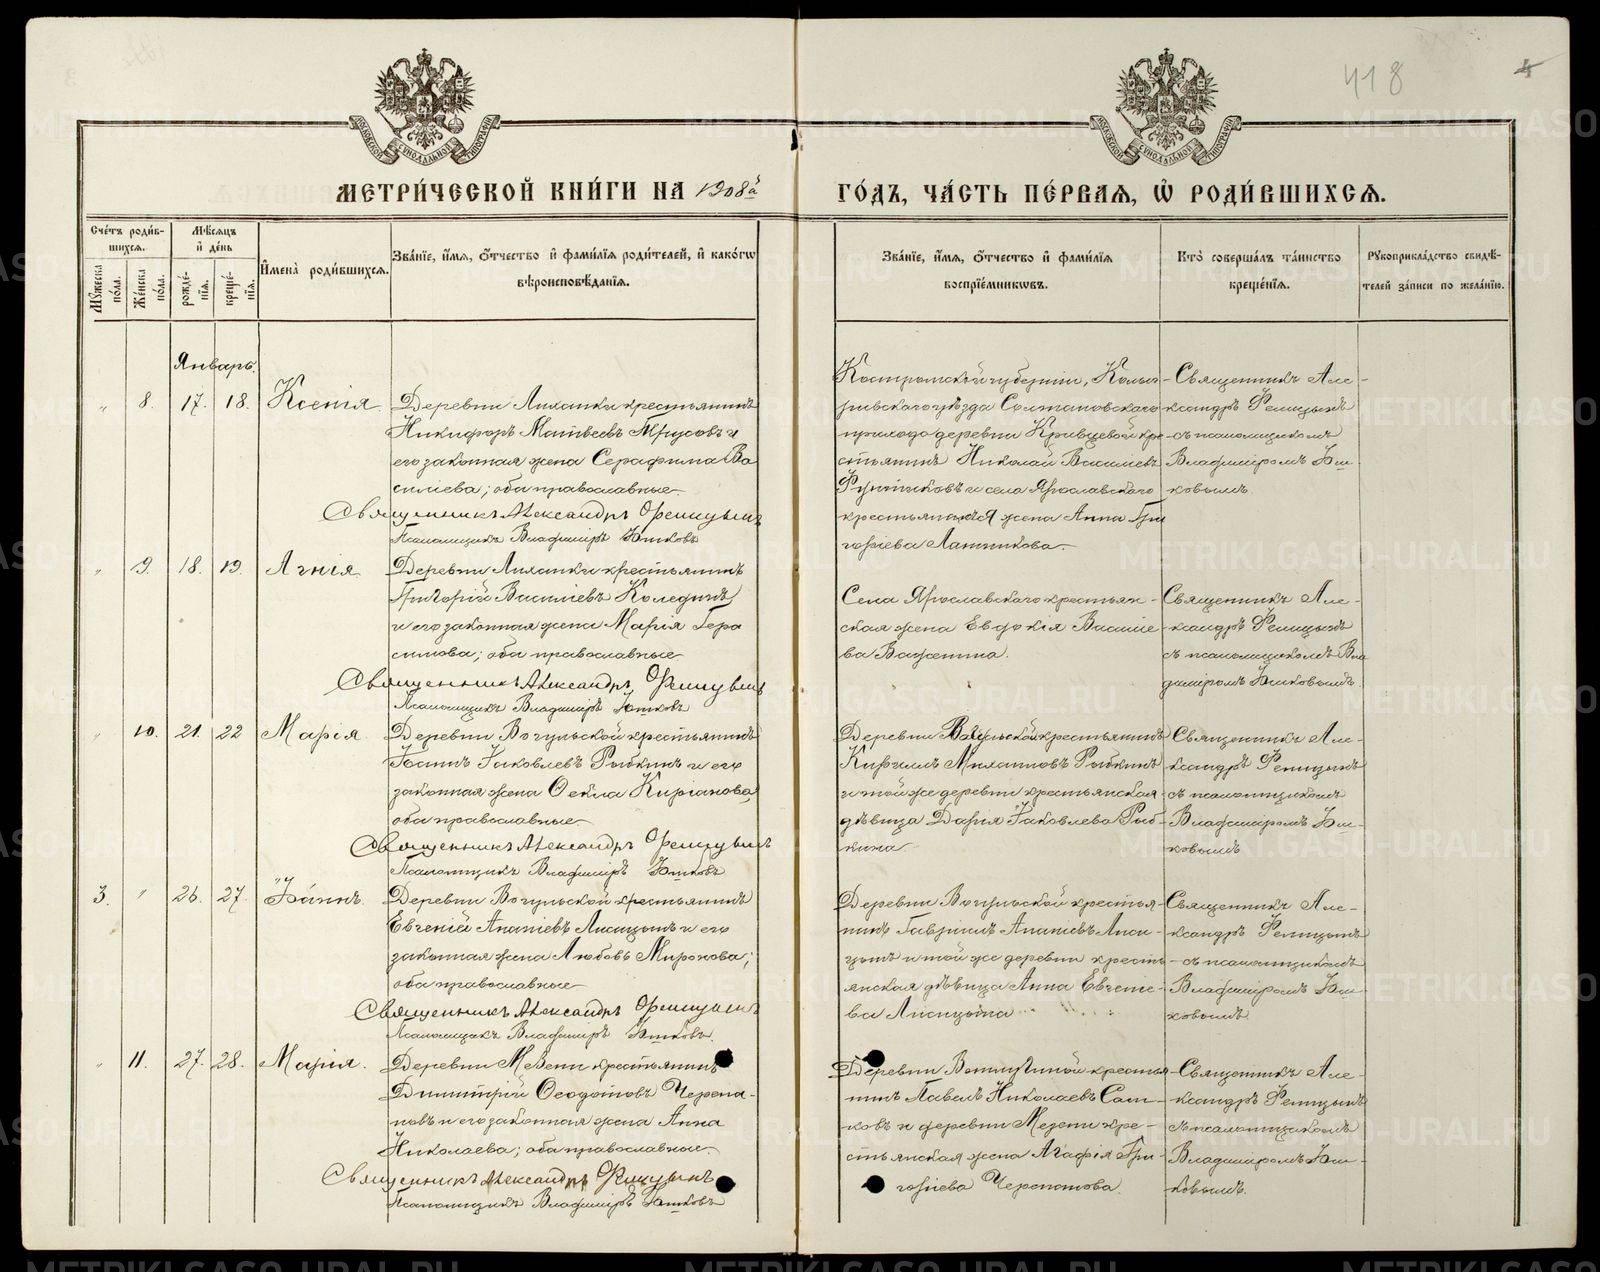 418
4
МОСКОВСКОЙ СѴНОДАЛЬНОЙ ТИПОГРАФІИ
МОСКОВСКОЙ СѴНОДАЛЬНОЙ ТИПОГРАФІИ
МЕТРИ́ЧЕСКОЙ КНИ́ГИ НА 1908й
ГО́ДЪ, ЧА́СТЬ ПЕ́РВАѦ, Ѡ҆ РОДИ́ВШИХСѦ.
Сче́тъ роди́в-
шихсѧ.
Мꙋ́жеска по́ла.
Же́нска по́ла.
Мѣ́сѧцъ
и҆ де́нь
рожде́-
нїѧ.
креще́-
нїѧ.
И҆мена̀ роди́вшихсѧ.
Зва́нїе, и҆́мѧ, ѻ҆́тчество и҆ фами́лїѧ роди́телей, и҆ како́гѡ
вѣроисповѣ́данїѧ.
Зва́нїе, и҆́мѧ, ѻ҆́тчество и҆ фами́лїѧ
воспрїе́мникѡвъ.
Кто̀ соверша́лъ та́инство
креще́нїѧ.
Рꙋкоприкла́дство свидѣ́-
телей за́писи по жела́нїю.
Январь.
„ 8. 17. 18. Ксенія.
Деревни Лиханки крестьянинъ
Никифоръ Матвеевъ Трусовъ и
его законная жена Серафима Ва
силіева; оба православные
Священникъ Александръ Фелицынъ
Псаломщикъ Владиміръ Юшковъ
Костромской губерніи, Колог-
ривскаго уѣзда Солтановскаго
прихода деревни Кривцевой кре-
стьянинъ Николай Василіевъ
и села Ярославскаго
крестьянская жена Анна Гри
горіева Латникова.
Священникъ Але-
ксандръ Фелицынъ
съ псаломщикомъ
Владиміромъ Юш-
ковымъ.
„ 9. 18. 19. Агнія
Деревни Лиханки крестьянинъ
Григорій Василіевъ Коледичъ
и его законная жена Марія Гера
симова; оба православные
Священникъ Александръ Фелицынъ
Псаломщикъ Владиміръ Юшковъ
Села Ярославскаго крестьян-
ская жена Евдокія Василіе-
ва Важенина.
Священникъ Але-
ксандръ Фелицынъ
съ псаломщикомъ Вла
диміромъ Юшковымъ.
„ 10. 21. 22 Марія
Деревни Вогульской крестьянинъ
Іоаннъ Іаковлевъ Рыбкинъ и его
законная жена Ѳекла Кирганова
оба православные
Священникъ Александръ Фелицынъ
Псаломщикъ Владиміръ Юшковъ
Деревни Вогульской крестьянинъ
Кириллъ Михаиловъ Рыбкинъ
и той же деревни крестьянская
дѣвица Дарія Іаковлева Рыб
кина
Священникъ Але-
ксандръ Фелицынъ
съ псаломщикомъ
Владиміромъ Юш-
ковымъ
3. „ 26. 27. Іоаннъ.
Деревни Вогульской крестьянинъ
Евгеній Ананіевъ Лисицынъ и его
законная жена Любовь Миронова;
оба православные
Священникъ Александръ Фелицынъ
Псаломщикъ Владиміръ Юшковъ.
Деревни Вогульской крестья-
нинъ Гавріилъ Ананіевъ Лиси-
цынъ и той же деревни кресть
янская дѣвица Анна Евгеніе-
ва Лисицына
Священникъ Але-
ксандръ Фелицынъ
съ псаломщикомъ
Владиміромъ Юш-
ковымъ.
„ 11. 27. 28. Марія.
Деревни Мезени крестьянинъ
Димитрій Ѳеодотовъ Черепа-
новъ и его законная жена Анна
Николаева; оба православные.
Священникъ Александръ Фелицынъ
Псаломщикъ Владиміръ Юшковъ
Деревни крестья-
нинъ Павелъ Николаевъ Сап-
ковъ и деревни Мезени кре-
стьянская жена Агафія Гри-
горіева Черепанова.
Священникъ Але-
ксандръ Фелицынъ
съ псаломщикомъ
Владиміромъ Юш-
ковымъ.
METRIKI.GASO-URAL.RU